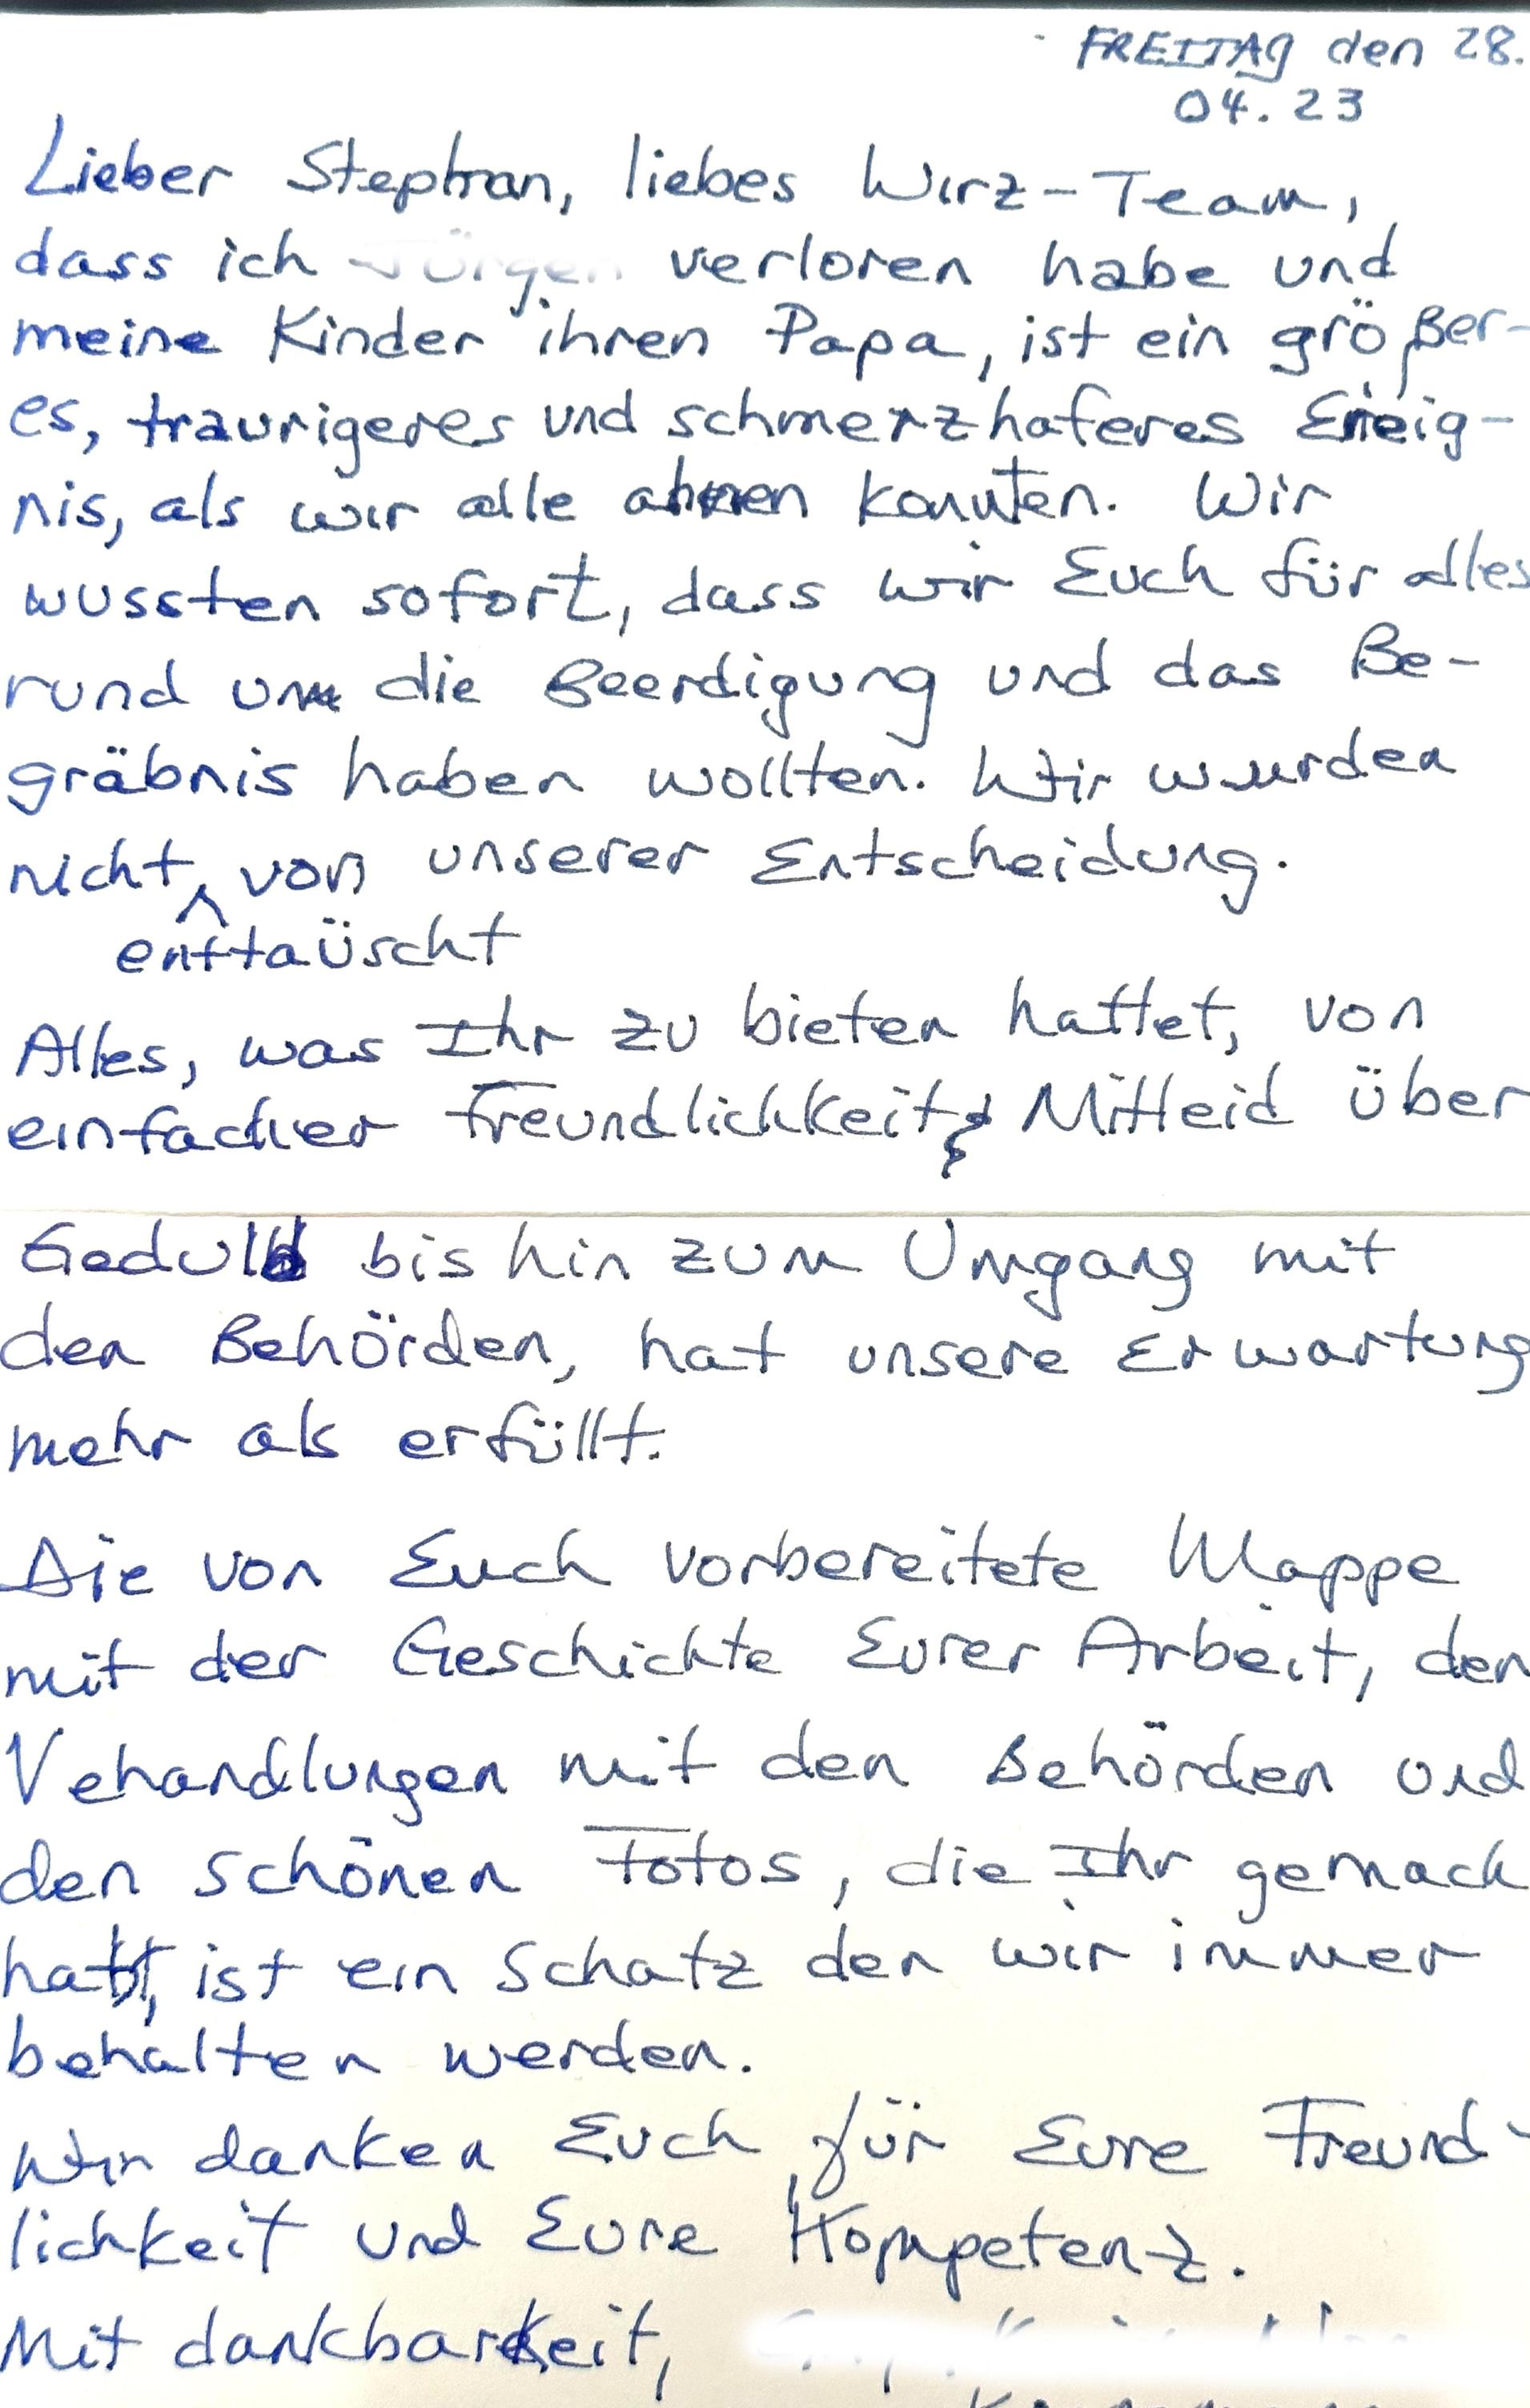 FREITAG den 28.
04.23
Lieber Stephan, liebes Wirz-Team,
dass ich verloren habe und
meine Kinder ihren Papa, ist ein größer-
es, traurigeres und schmerzhaferes Ereig-
nis, als wir alle ahnen konnten. Wir
wussten sofort, dass wir Euch für alles
rund um die Beerdigung und das Be-
gräbnis haben wollten. Wir wurden
nicht ^ von unserer Entscheidung.
enttaüscht
Alles, was Ihr zu bieten hattet, von
einfacher Freundlichkeit & Mitleid über
Geduld bis hin zum Umgang mit
den Behörden, hat unsere Erwartung
mehr als erfüllt.
Die von Euch vorbereitete Mappe
mit der Geschichte Eurer Arbeit, den
Vehandlungen mit den Behörden und
den schönen Fotos, die Ihr gemach
habt, ist ein Schatz den wir immer
behalten werden.
Wir danken Euch für Eure Freund-
lichkeit und Eure Kompetenz.
Mit dankbarkeit,